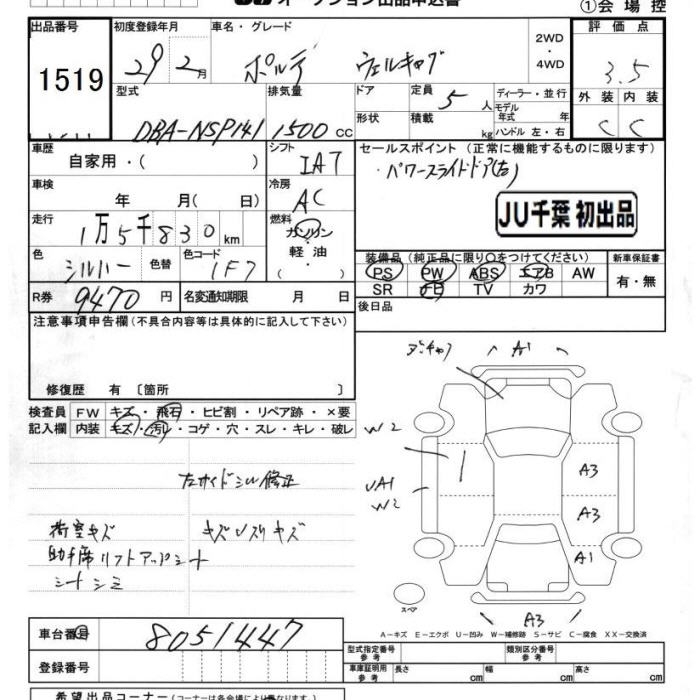 オークション出品申込書
①会場控
出品番号
1519
初度登録年月
29 2月
車名・グレード
ポルテ ウェルキャブ
2WD
・
4WD
評価点
3.5
外装 内装
C C
型式
DBA-NSP141
排気量
1500 CC
ドア
形状
定員
5 人
積載
kg
ディーラー・並行
モデル
年式 年
ハンドル 左・右
車歴
自家用・( )
シフト
IA7
セールスポイント (正常に機能するものに限ります)
・パワースライドドア(右)
車検
年 月( 日)
冷房
AC
JU千葉 初出品
走行
1万5千830km
燃料
ガソリン
・
軽油
・( )
色
シルバー
色替
色コード
1F7
装備品(純正品に限り○をつけてください)
PS PW ABS エアB AW
SR ナビ TV カワ
新車保証書
有・無
R券
9470円
名変通知期限 月 日
後日品
注意事項申告欄(不具合内容等は具体的に記入して下さい)
修復歴 有 〔箇所 〕
検査員
記入欄
FW キズ・飛石・ヒビ割・リペア跡・×要
内装 キズ・汚レ・コゲ・穴・スレ・キレ・破レ
左サイドシル修正
荷室キズ
助手席リフトアップシート
シートシミ
A1
W2
UA1
W2
A3
A3
A1
A3
スペア
A-キズ E-エクボ U-凹み W-補修跡 S-サビ C-腐食 XX-交換済
車台番号
8051447
登録番号
型式指定番号
参考
類別区分番号
参考
車庫証明用
参考
長さ cm 幅 cm 高さ cm
希望出品コーナー(コーナーは各会場により異なります。)